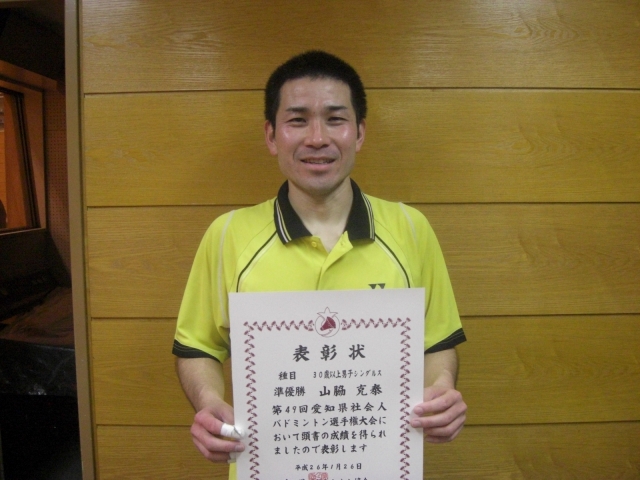 表彰状
種目 30歳以上男子シングルス
準優勝 山脇 克泰
第49回愛知県社会人
バドミントン選手権大会に
おいて頭書の成績を得られ
ましたので表彰します
平成26年1月26日